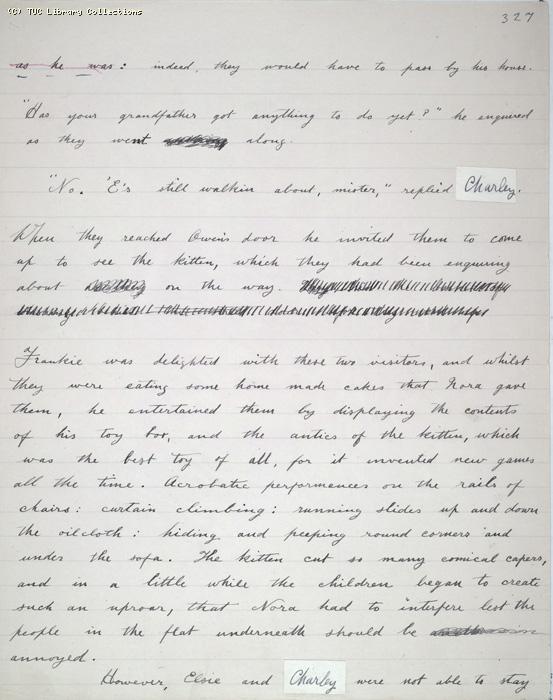 (C) TUC Library Collections
327
as he was: indeed, they would have to pass by his house.
"Has your grandfather got anything to do yet?" he enquired
as they went along.
"No. 'E's still walkin about, mister," replied Charley.
When they reached Owen's door he invited them to come
up to see the kitten, which they had been enquiring
about on the way.
Frankie was delighted with these two visitors, and whilst
they were eating some home made cakes that Nora gave
them, he entertained them by displaying the contents
of his toy box, and the antics of the kitten, which
was the best toy of all, for it invented new games
all the time. Acrobatic performances on the rails of
chairs: curtain climbing: running slides up and down
the oilcloth: hiding and peeping round corners and
under the sofa. The kitten cut so many comical capers,
and in a little while the children began to create
such an uproar, that Nora had to interfere lest the
people in the flat underneath should be
annoyed.
However, Elsie and Charley were not able to stay